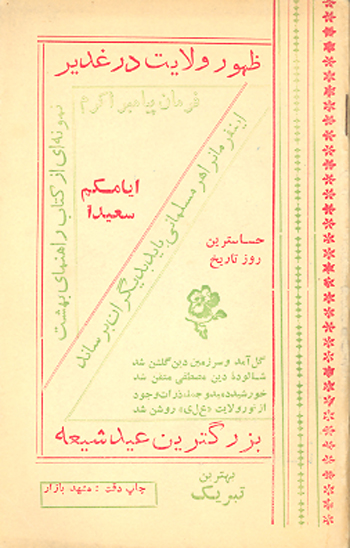 ظهور ولایت در غدیر
فرمان پیامبر اکرم
نمونه‌ای از کتاب راهنمای بهشت
اینفرمانرا هر مسلمانی باید بدیگران برساند
ایامکم
سعیدا
حساسترین
روز تاریخ
گل آمد و سرزمین دین گلشن شد
شالودهٔ دین مصطفی متقن شد
خورشید دمید و جمله ذرات وجود
از نور ولایت «علی» روشن شد
بزرگترین عید شیعه
بهترین
تبریک
چاپ دقت : مشهد بازار